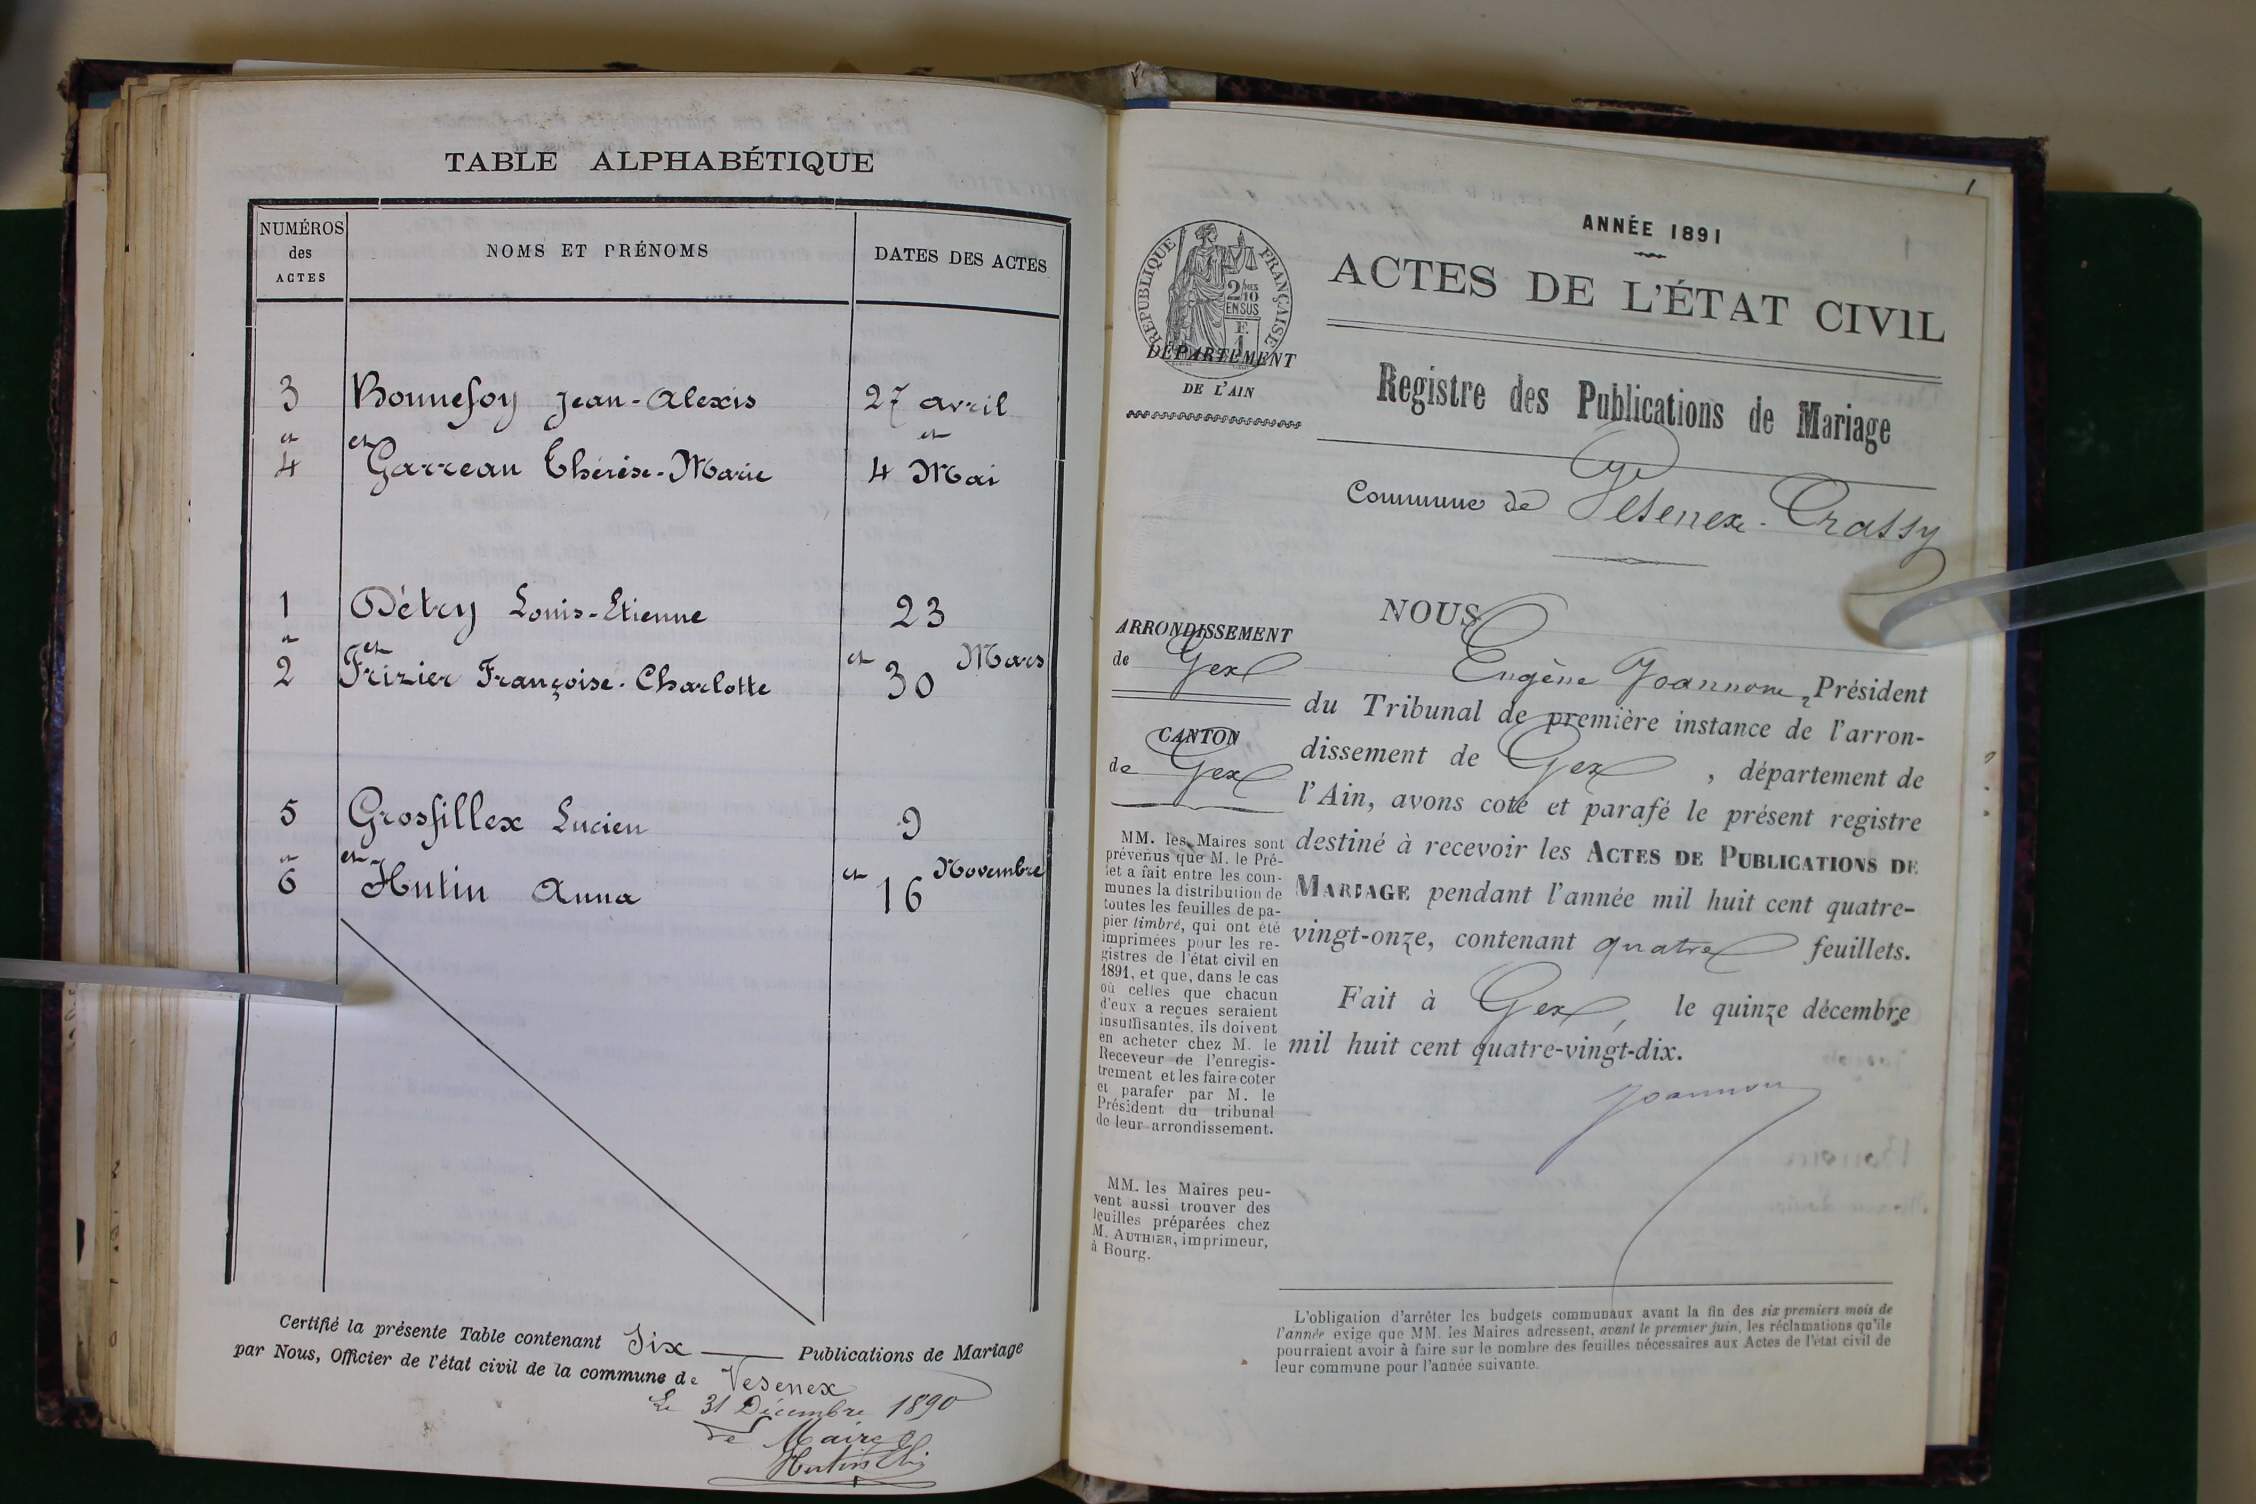 TABLE ALPHABÉTIQUE
NUMÉROS
des
ACTES
NOMS ET PRÉNOMS
DATES DES ACTES
3 Bonnefoy Jean-Alexis 27 avril
et et et
4 Garreau Thérèse-Marie 4 Mai
1 Détry Louis-Etienne 23
et et et Mars
2 Frizier Françoise-Charlotte 30
5 Grosfillex Lucien 9
et et et Novembre
6 Hutin Anna 16
Certifié la présente Table contenant Six Publications de Mariage
par Nous, Officier de l'état civil de la commune de Vesenex
Le 31 Décembre 1890
Le Maire
Hutin
1
ANNÉE 1891
ACTES DE L'ÉTAT CIVIL
RÉPUBLIQUE FRANÇAISE
2/10
EN SUS
F.
1
DÉPARTEMENT
DE L'AIN
Registre des Publications de Mariage
Commune de Vesenex-Crassy
ARRONDISSEMENT
de Gex
CANTON
de Gex
NOUS
Eugène Joannon, Président
du Tribunal de première instance de l'arron-
dissement de Gex, département de
l'Ain, avons coté et parafé le présent registre
destiné à recevoir les ACTES DE PUBLICATIONS DE
MARIAGE pendant l'année mil huit cent quatre-
vingt-onze, contenant quatre feuillets.
Fait à Gex, le quinze décembre
mil huit cent quatre-vingt-dix.
Joannon
MM. les Maires sont
prévenus que M. le Pré-
fet a fait entre les com-
munes la distribution de
toutes les feuilles de pa-
pier timbré, qui ont été
imprimées pour les re-
gistres de l'état civil en
1891, et que, dans le cas
où celles que chacun
d'eux a reçues seraient
insuffisantes, ils doivent
en acheter chez M. le
Receveur de l'enregis-
trement et les faire coter
et parafer par M. le
Président du tribunal
de leur arrondissement.
MM. les Maires peu-
vent aussi trouver des
feuilles préparées chez
M. AUTHIER, imprimeur,
à Bourg.
L'obligation d'arrêter les budgets communaux avant la fin des six premiers mois de
l'année exige que MM. les Maires adressent, avant le premier juin, les réclamations qu'ils
pourraient avoir à faire sur le nombre des feuilles nécessaires aux Actes de l'état civil de
leur commune pour l'année suivante.